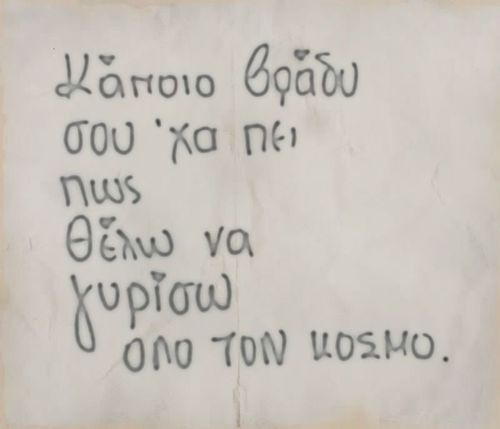 Κάποιο βράδυ
σου 'χα πει
πως
θέλω να
γυρίσω
ολο τον κοσμο.